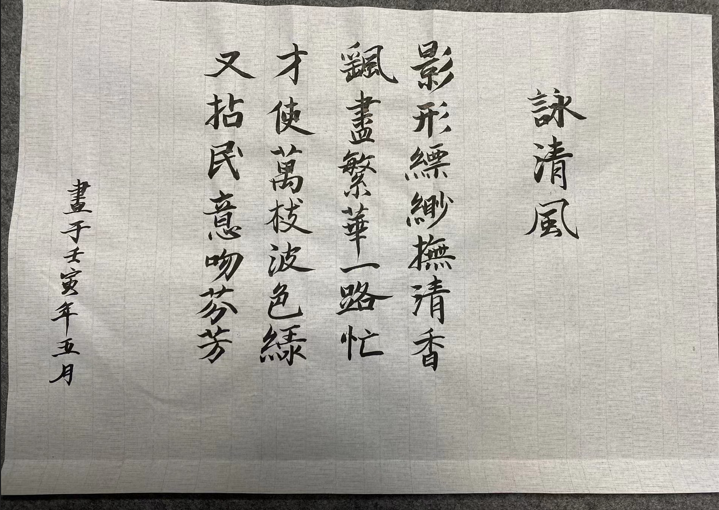 詠清風
影形縹緲撫清香
飄盡繁華一路忙
才使萬枝波色綠
又拈民意吻芬芳
畫于壬寅年五月